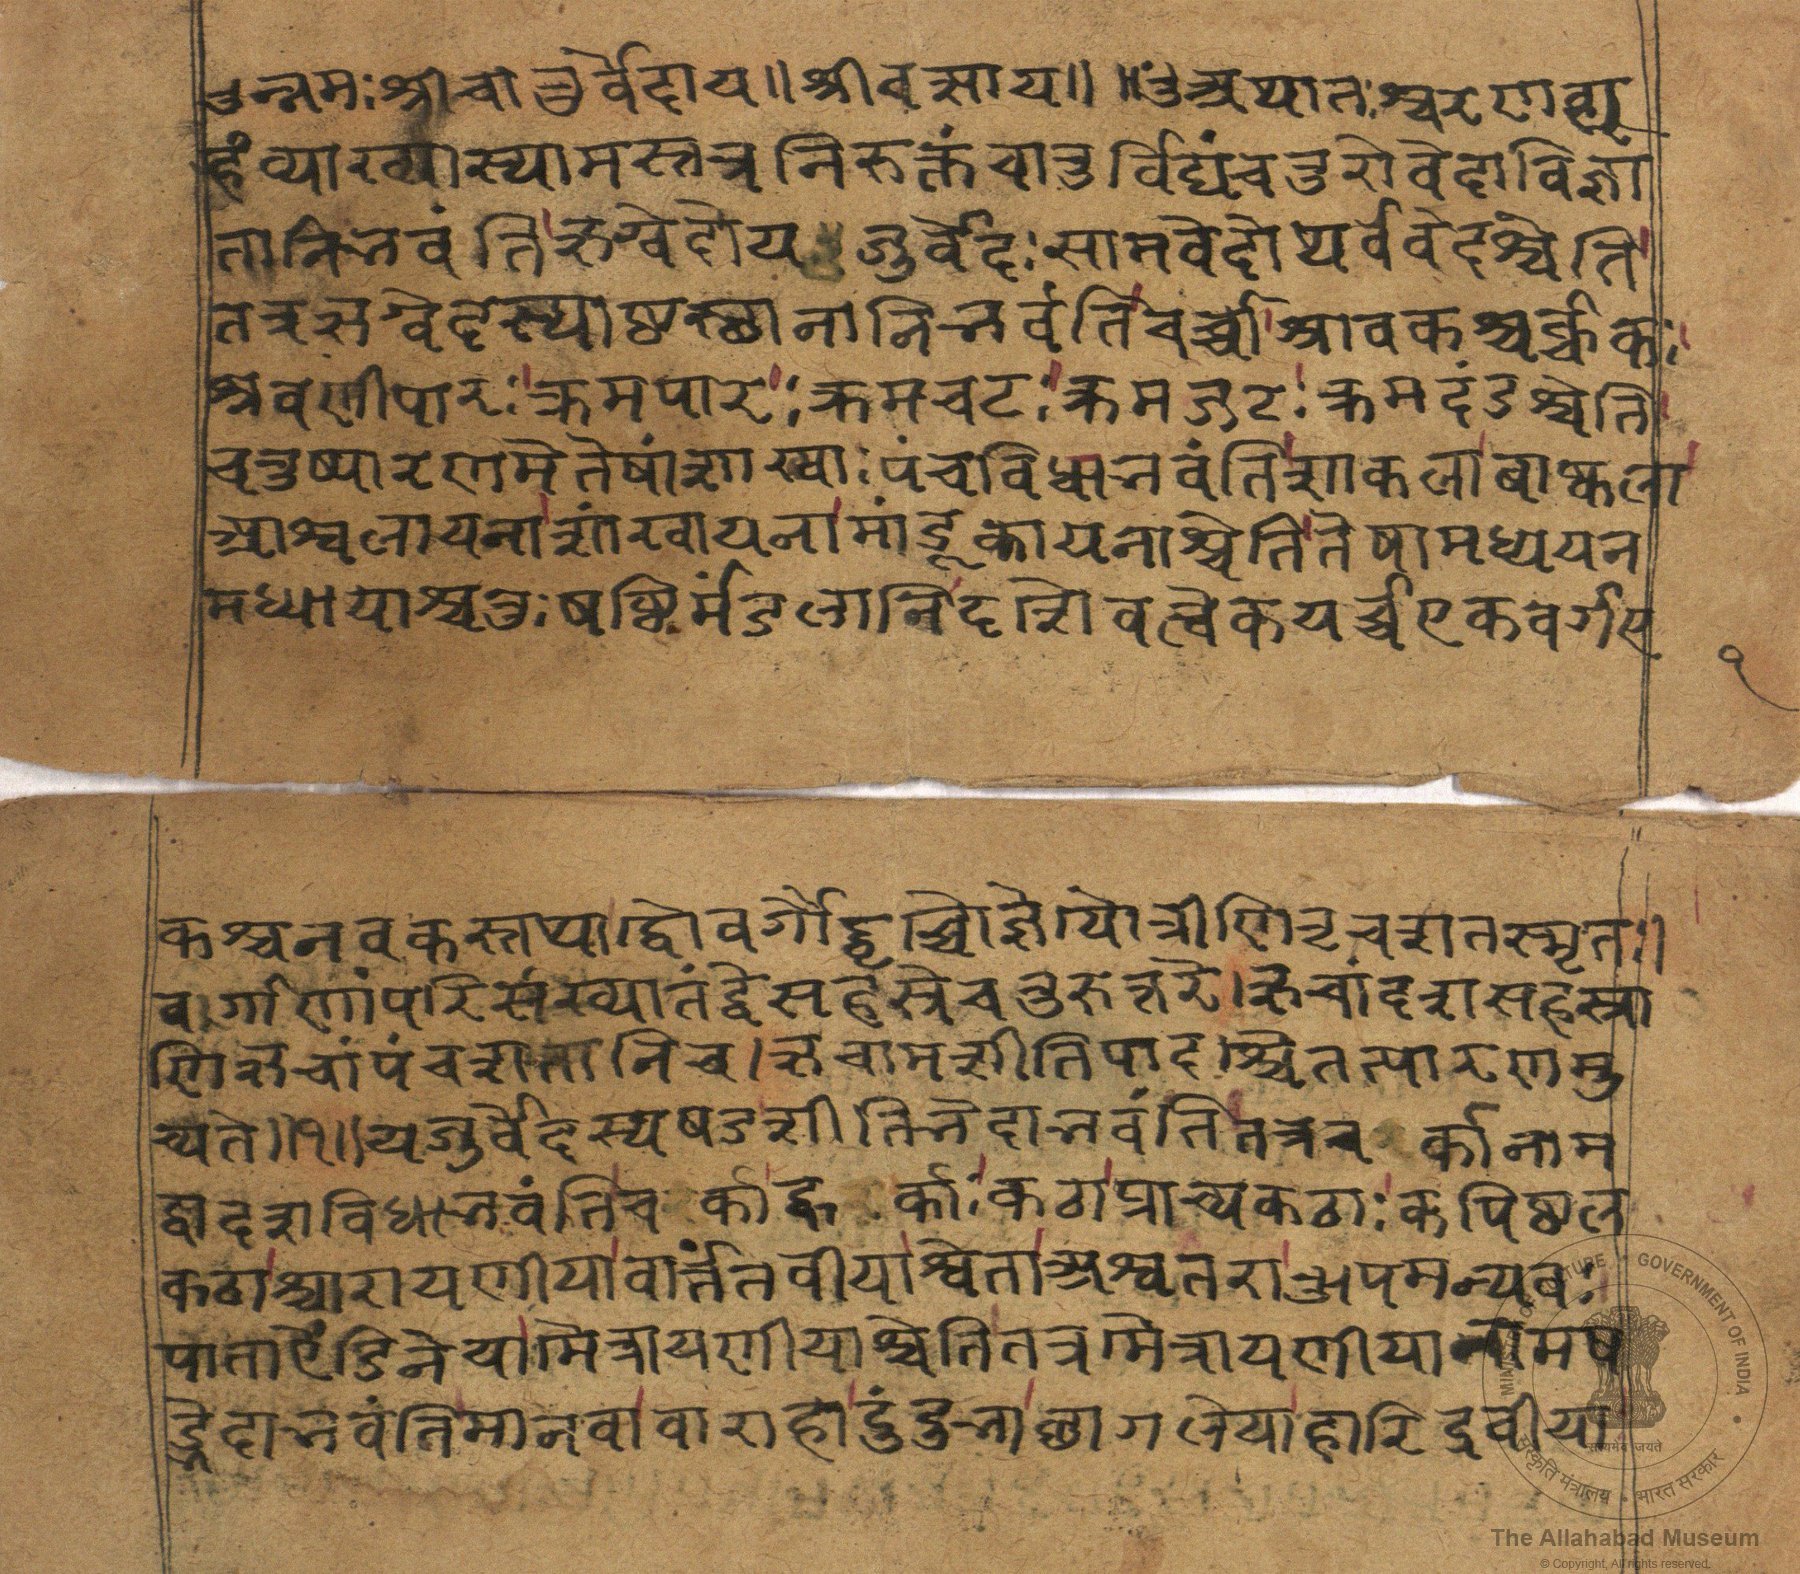 उन्नमः श्रीचातुर्वेदाय॥ श्रीवत्साय॥ ॥उंअथातश्चरणव्यू
हंव्याख्यास्यामस्तत्रनिरुक्तंचातुर्विद्यंचतुरोवेदाविज्ञा
तानिभवंतिऋग्वेदोय जुर्वेदः सामवेदोथर्ववेदश्चेति
तत्रऋग्वेदस्याष्टस्थानानिभवंतिचर्च्चाश्रावकश्चर्च्चकः
श्रवणीपारः क्रमपारः क्रमचटः क्रमजटः क्रमदंडश्चेति
चतुष्पारणमेतेषांशाखाः पंचविधाभवंतिशाकलाबाष्कला
आश्वलायनाशांखायनामांडूकायनाश्चेतितेषामध्ययन
मध्यायाश्चतुःषष्टिर्मंडलानिदशैवत्वेकयर्च्चएकवर्गए
१
कश्चनवकस्तथा।द्वौवर्गौद्वृचौज्ञेयौत्रीणितृचशतस्मृतः॥
वर्गाणांपरिसंख्यातंद्वेसहस्रेचतुरुत्तरे।ऋचांदशसहस्रा
णिऋचांपंचशतानिच।ऋचामशीतिपादश्चैतत्पारणमु
च्यते॥१॥यजुर्वेदस्यषडशीतिभेदाभवंतितत्रच र्कानाम
द्वादशविधाभवंतिच र्काह्व र्काःकठाप्राच्यकठाःकपिष्ठल
कठाश्चारायणीयावार्त्ततवीयाश्वेताअश्वतराउपमन्यवः
पाताऐंडिनेयामैत्रायणीयाश्चेतितत्रमैत्रायणीयानामष
ड्भेदाभवंतिमानवावाराहादुंदुभाछागलेयाहारिद्रवीया
MINISTRY OF CULTURE • GOVERNMENT OF INDIA
सत्यमेव जयते
संस्कृति मंत्रालय • भारत सरकार
The Allahabad Museum
© Copyright, All rights reserved.